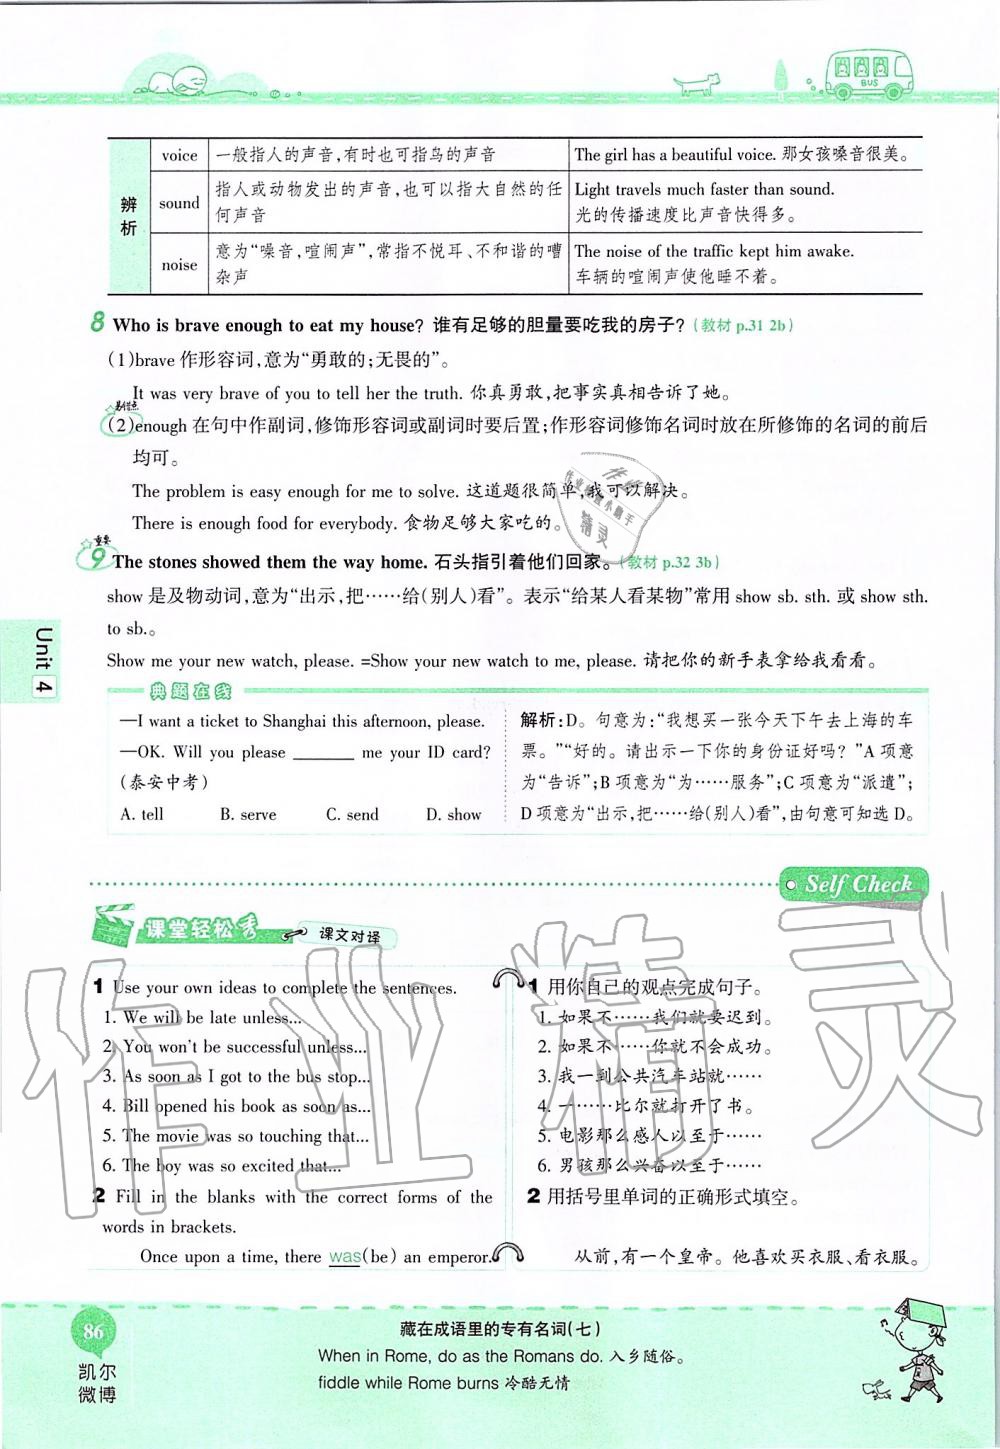 BUS
辨析
voice 一般指人的声音,有时也可指鸟的声音 The girl has a beautiful voice. 那女孩嗓音很美。
sound 指人或动物发出的声音,也可以指大自然的任何声音 Light travels much faster than sound. 光的传播速度比声音快得多。
noise 意为“噪音,喧闹声”,常指不悦耳、不和谐的嘈杂声 The noise of the traffic kept him awake. 车辆的喧闹声使他睡不着。
8 Who is brave enough to eat my house? 谁有足够的胆量要吃我的房子?(教材 p.31 2b)
(1)brave 作形容词,意为“勇敢的;无畏的”。
It was very brave of you to tell her the truth. 你真勇敢,把事实真相告诉了她。
易错点
(2)enough 在句中作副词,修饰形容词或副词时要后置;作形容词修饰名词时放在所修饰的名词的前后
均可。
The problem is easy enough for me to solve. 这道题很简单,我可以解决。
There is enough food for everybody. 食物足够大家吃的。
重要
9 The stones showed them the way home. 石头指引着他们回家。(教材 p.32 3b)
show 是及物动词,意为“出示,把……给(别人)看”。表示“给某人看某物”常用 show sb. sth. 或 show sth.
to sb.。
Show me your new watch, please. =Show your new watch to me, please. 请把你的新手表拿给我看看。
Unit 4
典题在线
—I want a ticket to Shanghai this afternoon, please.
—OK. Will you please ________ me your ID card?
(泰安中考)
A. tell B. serve C. send D. show
解析:D。句意为:“我想买一张今天下午去上海的车
票。”“好的。请出示一下你的身份证好吗?”A 项意
为“告诉”;B 项意为“为……服务”;C 项意为“派遣”;
D 项意为“出示,把……给(别人)看”,由句意可知选 D。
Self Check
课堂轻松秀 课文对译
1 Use your own ideas to complete the sentences.
1. We will be late unless...
2. You won't be successful unless...
3. As soon as I got to the bus stop...
4. Bill opened his book as soon as...
5. The movie was so touching that...
6. The boy was so excited that...
2 Fill in the blanks with the correct forms of the
words in brackets.
Once upon a time, there was(be) an emperor.
1 用你自己的观点完成句子。
1. 如果不……我们就要迟到。
2. 如果不……你就不会成功。
3. 我一到公共汽车站就……
4. 一……比尔就打开了书。
5. 电影那么感人以至于……
6. 男孩那么兴奋以至于……
2 用括号里单词的正确形式填空。
从前,有一个皇帝。他喜欢买衣服、看衣服。
作业精灵
86
凯尔
微博
藏在成语里的专有名词(七)
When in Rome, do as the Romans do. 入乡随俗。
fiddle while Rome burns 冷酷无情